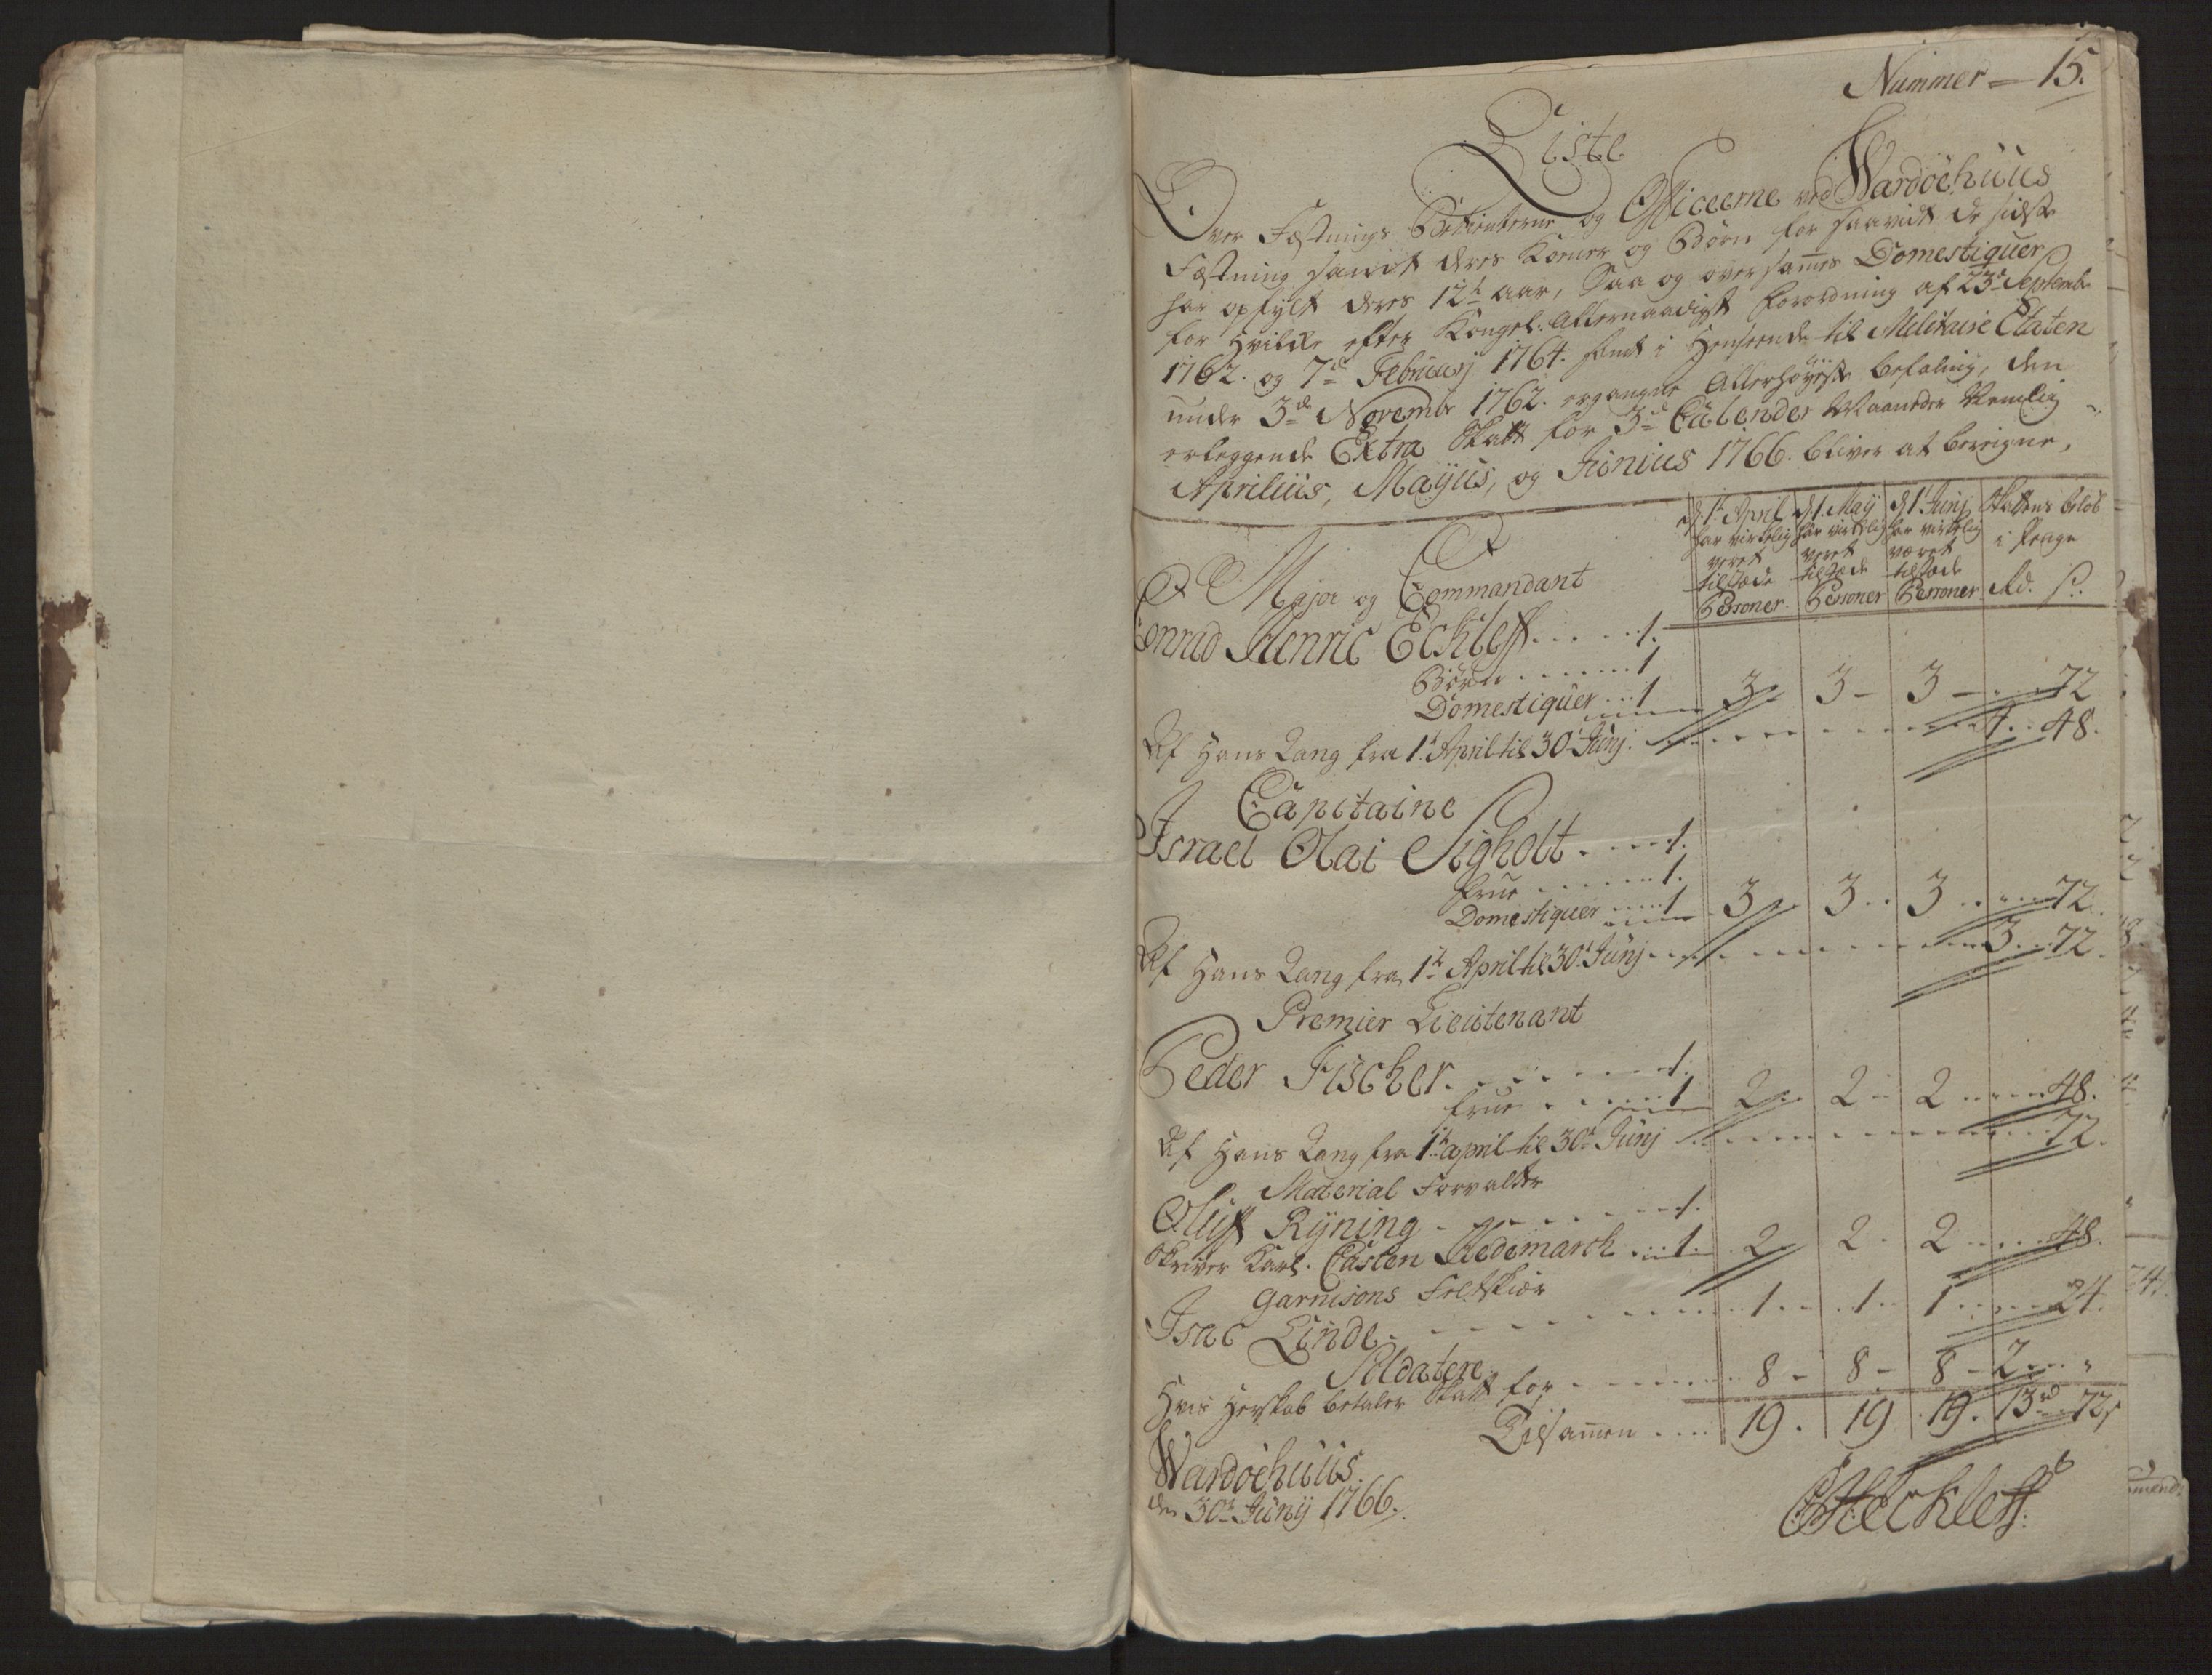 Nummer = 15.
Liste
Over Fæstnings Betienterne og Officeerne ved Wardöehuus
Fæstning samt deres Koener og Börn for saavidt de sidste
har opfÿlt deres 12te aar, Saa og over sammes Domestiquer
for Hvilke efter Kongel: Allernaadigst Forordning af 23de Septembr
1762. og 7de Februarj 1764. samt i Henseende til Militaire Etaten
under 3de Novembr 1762. ergangne Allerhöÿeste befaling, den
erleggende Extra Skatt for 3de Calender Maaneder Nemlig
Aprilius, Maÿus, og Junius 1766. bliver at bereigne,
d. 1te April har virkelig veret tilstæde Personer
d. 1. Maÿ har virkelig veret tilstæde Personer
d. 1te Junj har virkelig været tilstæde Personer
Skattens belöb i Penge Rd. s.
Major og Commandant
Conrad Henric Eckleff . . . . 1.
Börn . . . . 1
Domestiquer . . . 1 3 3 - 3 - " 72
Af Hans Gang fra 1te April til 30te Junj . . . . 4. 48.
Capitaine
Israel Olai Sigholt . . . . 1.
Frue . . . . 1.
Domestiquer . . . . 1 3 3 3 " 72.
Af Hans Gang fra 1te April til 30te Junj . . . . 3. 72.
Premier Lieutenant
Peder Fischer . . . . 1.
Frue . . . . 1 2 2 2 " 48.
Af Hans Gang fra 1te april til 30te Junj . . . . 72.
Material Forvalter
Oluff Rÿning . . . . 1.
Skriver Karl. Casten Hedemarck . . . 1. 2 2 2 . . . 48.
Garnisons Feltskiær
Isac Linde . . . . 1 1 1 . . . 24.
Soldatere
Hvis Herskab betaler Skatt for . . . . 8 - 8 - 8 - 2 . . "
Tilsamen . . . . 19. 19 19. 13rd 72s
Wardöehuus
den 30te Junÿ 1766.
CHEckleff.